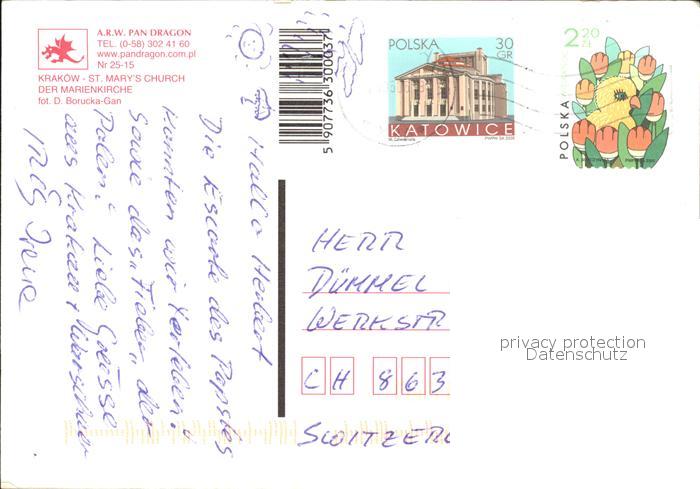 A.R.W. PAN DRAGON
TEL. (0-58) 302 41 60
www.pandragon.com.pl
Nr 25-15
KRAKÓW - ST. MARY'S CHURCH
DER MARIENKIRCHE
fot. D. Borucka-Gan
5 907736 300037
POLSKA 30 GR
KATOWICE
2 20 ZŁ
POLSKA
Hallo Herbert
Die Escorte des Papstes
konnten wir
Sowie das "Fieber" der
Polen. Liebe Grüsse
aus Krakau + Warschau
HERR
DÜMMEL
WERKSTR
CH 863
SWITZERL
privacy protection
Datenschutz